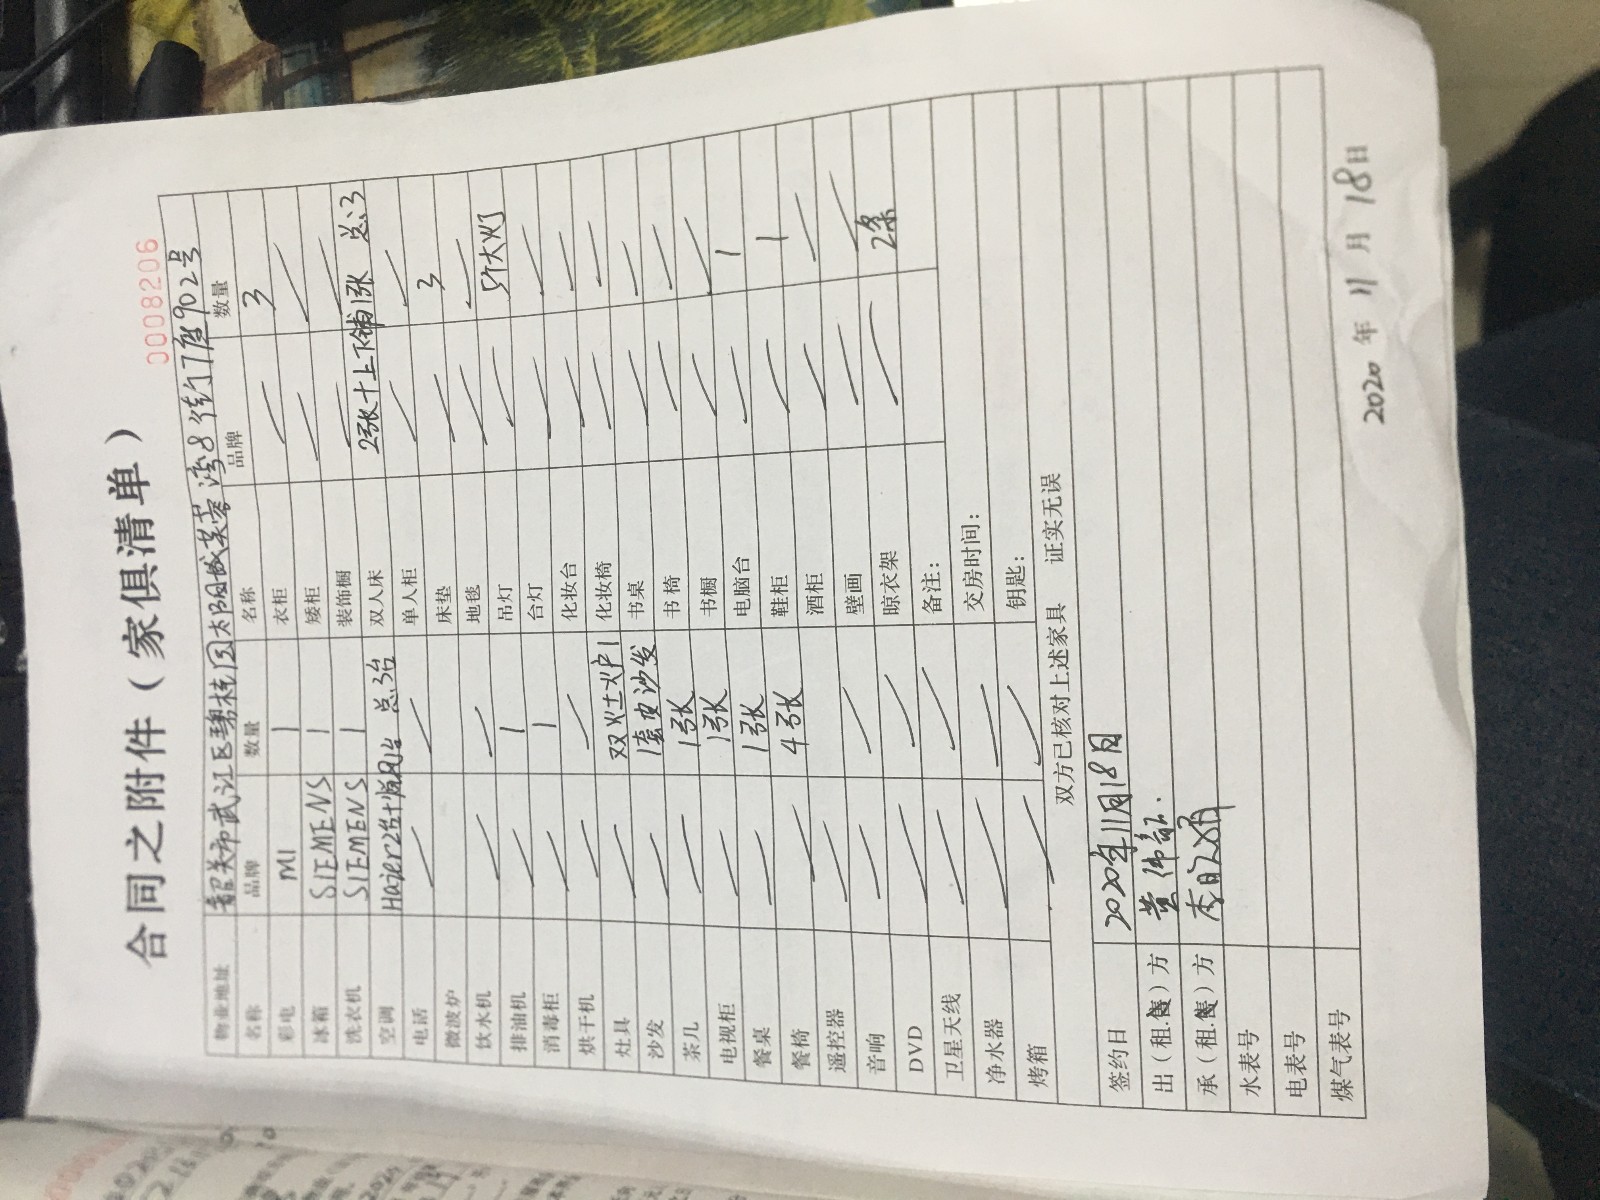 合同之附件（家俱清单）
0008206
物业地址 韶关市武江区碧桂园太阳城芙蓉湾8街7座902号
名称 品牌 数量 名称 品牌 数量
彩电 MI 1 衣柜 3
冰箱 SIEMENS 1 矮柜
洗衣机 SIEMENS 1 装饰橱
空调 Haier 总3台 双人床 2张+上下铺1张 总3
电话 单人柜
微波炉 床垫 3
饮水机 地毯
排油机 1 吊灯 5个大灯
消毒柜 1 台灯
烘干机 化妆台
灶具 双灶火炉1 化妆椅
沙发 1套皮沙发 书桌
茶几 1张 书椅
电视柜 1张 书橱
餐桌 1张 电脑台 1
餐椅 4张 鞋柜 1
遥控器 酒柜
音响 壁画
DVD 晾衣架 2条
卫星天线 备注：
净水器 交房时间：
烤箱 钥匙：
双方已核对上述家具 证实无误
签约日 2020年11月18日
出（租.售）方
承（租.售）方
水表号
电表号
煤气表号
2020 年 11 月 18 日